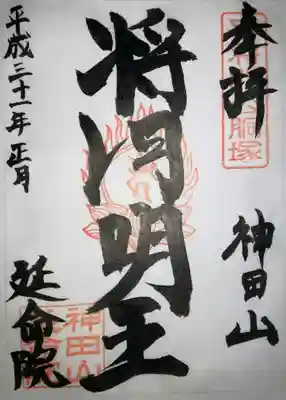 奉拝
胴塚
神田山
将門明王
平成三十一年正月
延命院
神田山